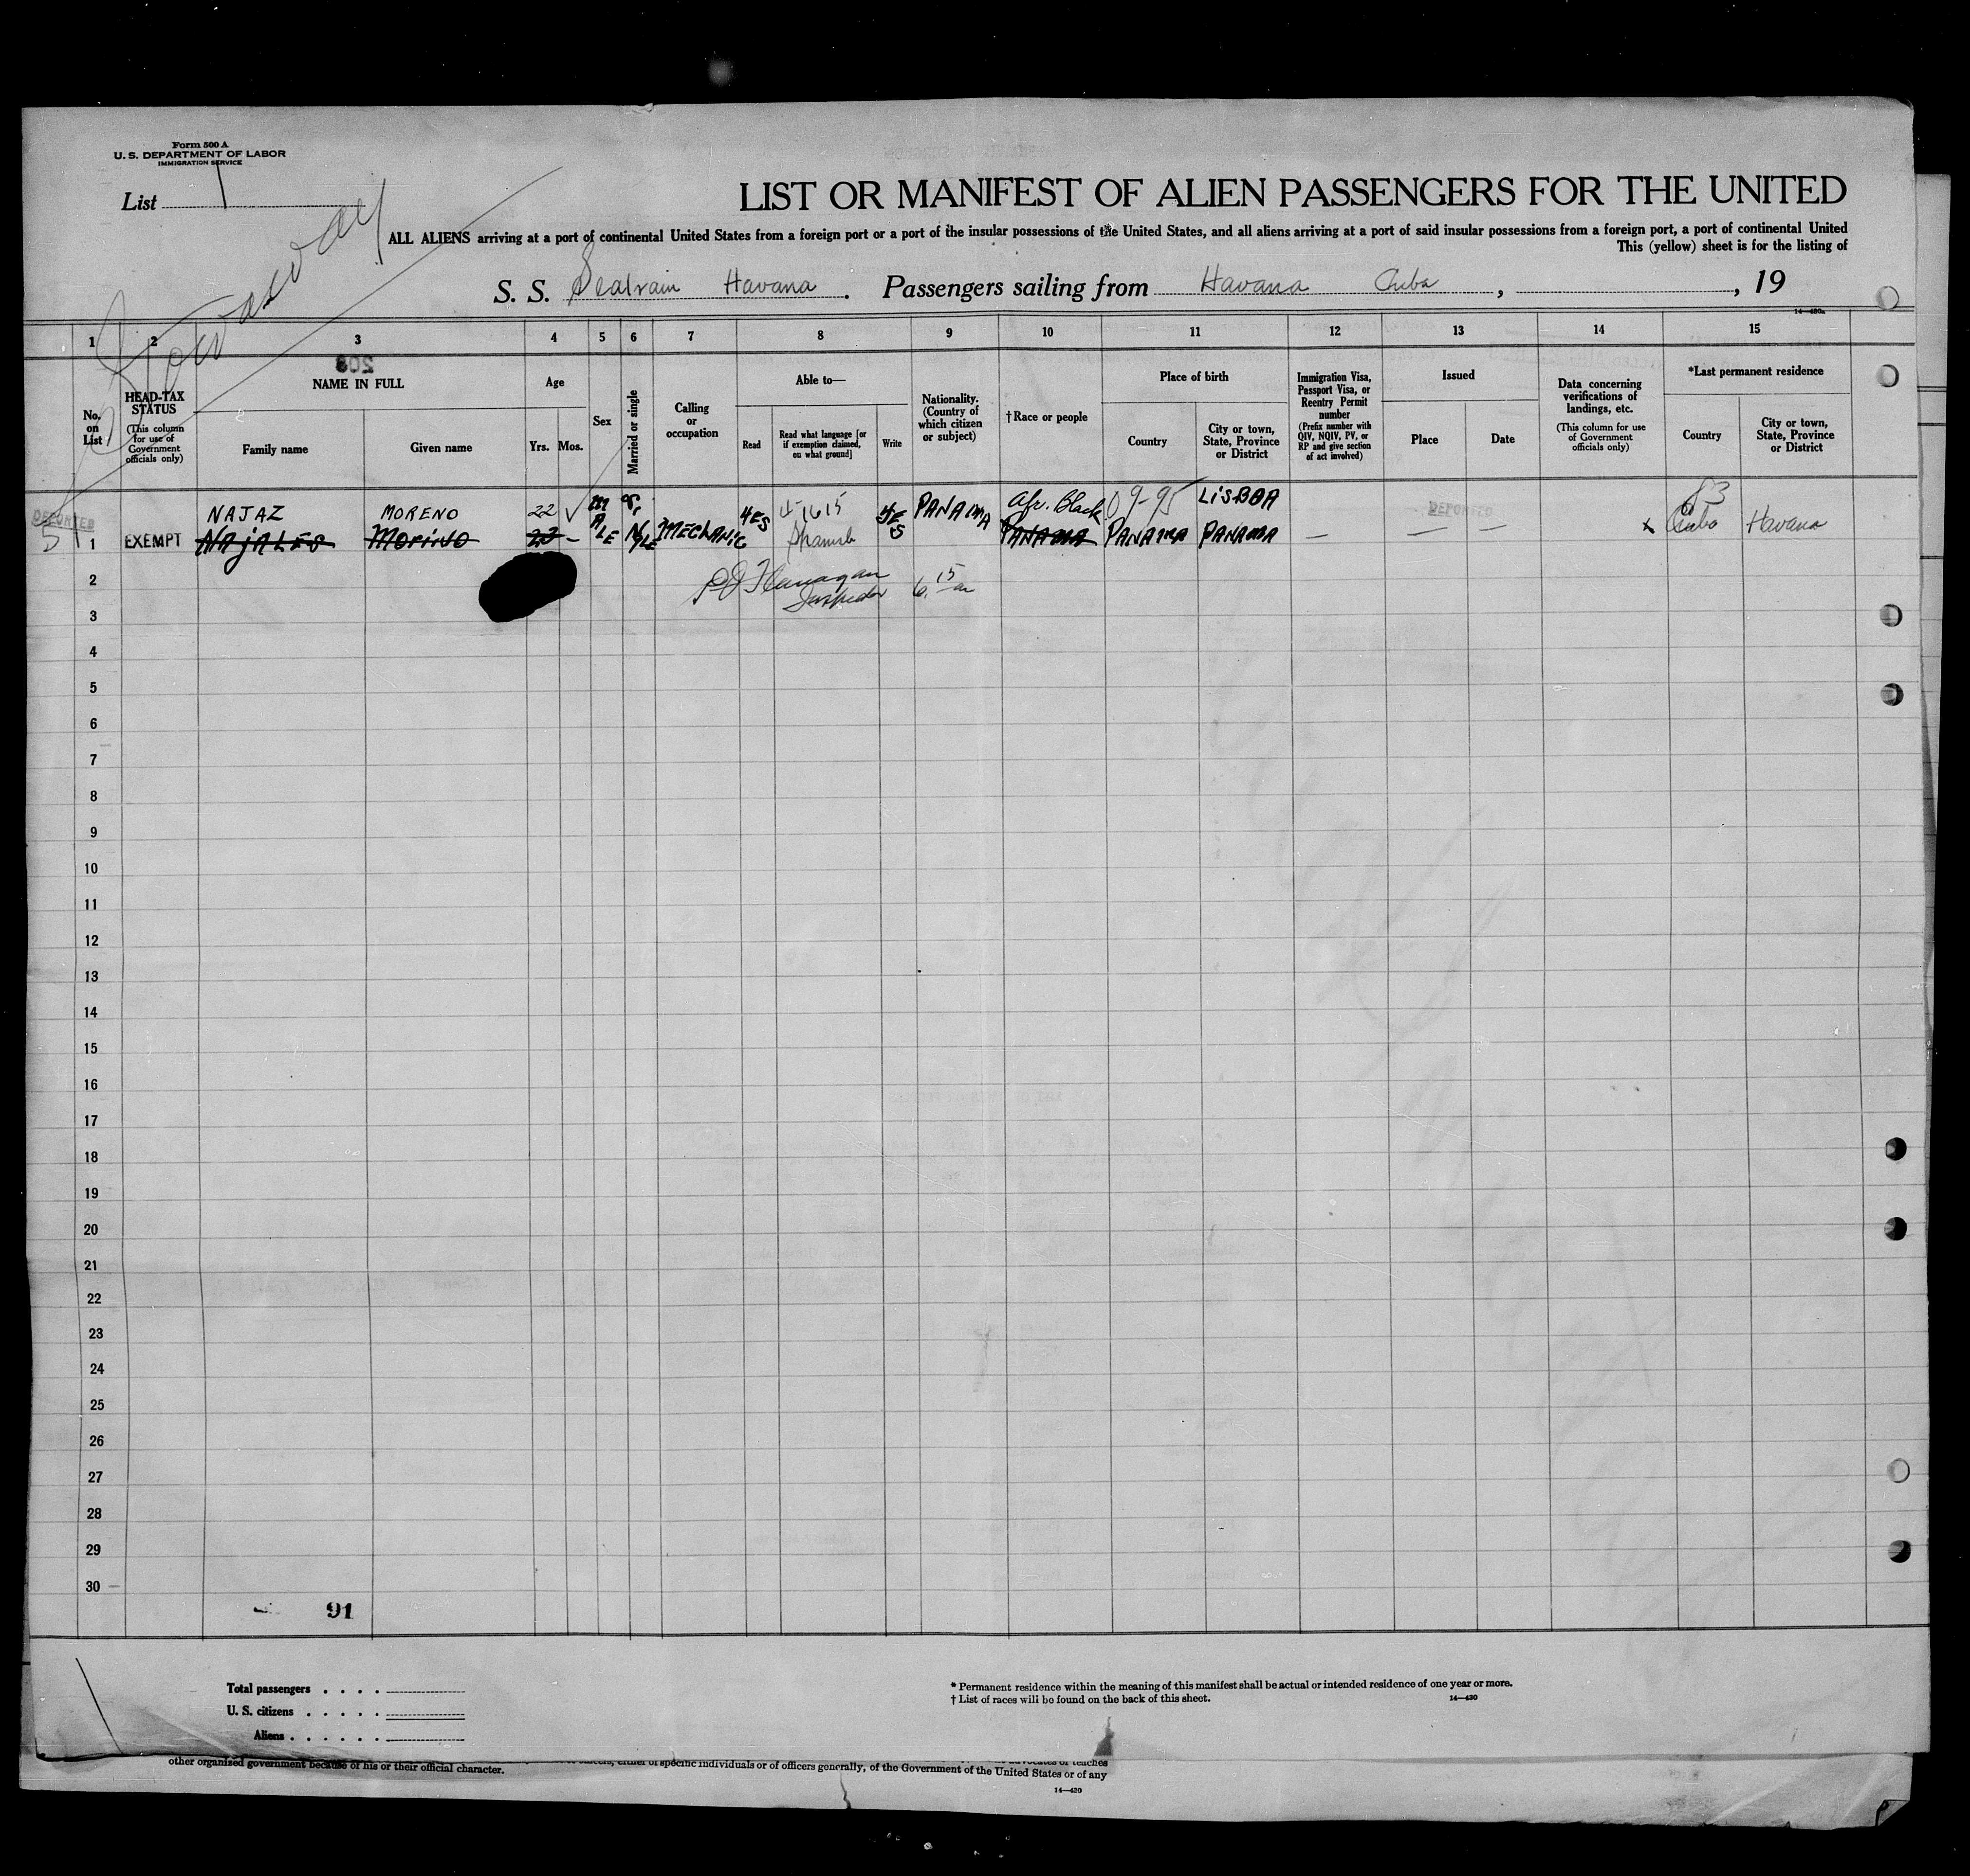 Form 500 A
U. S. DEPARTMENT OF LABOR
IMMIGRATION SERVICE
List 1
Stowaway
LIST OR MANIFEST OF ALIEN PASSENGERS FOR THE UNITED
ALL ALIENS arriving at a port of continental United States from a foreign port or a port of the insular possessions of the United States, and all aliens arriving at a port of said insular possessions from a foreign port, a port of continental United
This (yellow) sheet is for the listing of
S. S. Seatrain Havana. Passengers sailing from Havana Cuba, , 19
14—430a
1 2 3 4 5 6 7 8 9 10 11 12 13 14 15
208
No. on List
HEAD-TAX STATUS (This column for use of Government officials only)
NAME IN FULL
Family name
Given name
Age
Yrs. Mos.
Sex
Married or single
Calling or occupation
Able to—
Read
Read what language [or if exemption claimed, on what ground]
Write
Nationality. (Country of which citizen or subject)
† Race or people
Place of birth
Country
City or town, State, Province or District
Immigration Visa, Passport Visa, or Reentry Permit number (Prefix number with QIV, NQIV, PV, or RP and give section of act involved)
Issued
Place
Date
Data concerning verifications of landings, etc. (This column for use of Government officials only)
*Last permanent residence
Country
City or town, State, Province or District
DEPORTED NAJAZ MORENO 22 ✓ MALE YES 1615 YES PANAMA Afr. Black 09-95 LISBOA DEPORTED 83
1 EXEMPT NAJALES MORINO 23 – MECHANIC Spanish PANAMA PANAMA PANAMA — — — x Cuba Havana
2 Flanagan 6.15 am
Inspector
3
4
5
6
7
8
9
10
11
12
13
14
15
16
17
18
19
20
21
22
23
24
25
26
27
28
29
30
91
Total passengers . . . .
U. S. citizens . . . . .
Aliens . . . . . .
* Permanent residence within the meaning of this manifest shall be actual or intended residence of one year or more.
† List of races will be found on the back of this sheet. 14—430
either of specific individuals or of officers generally, of the Government of the United States or of any
other organized government because of his or their official character.
14—430